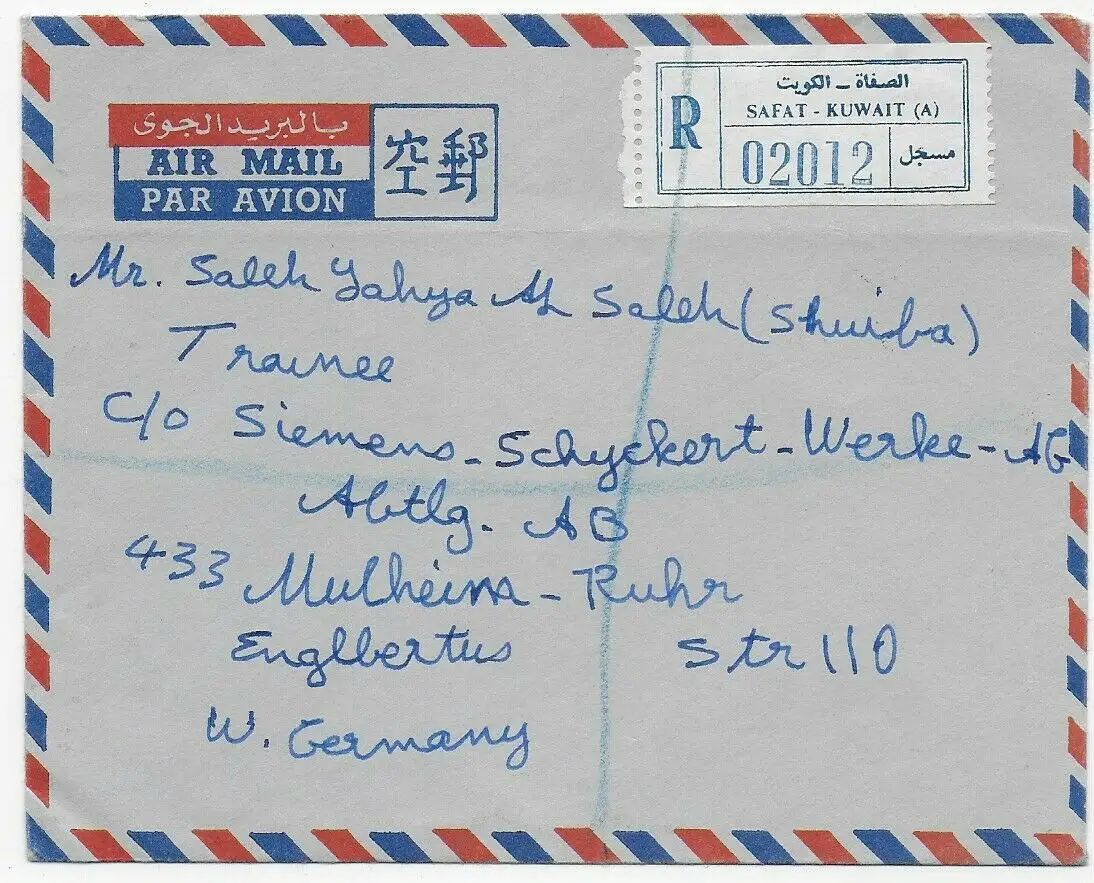 بالبريد الجوى
AIR MAIL
PAR AVION
空郵
الصفاة - الكويت
SAFAT - KUWAIT (A)
R
02012
مسجل
Mr. Saleh Yahya AL Saleh (Shuiba)
Trainee
C/o Siemens - Schyckert - Werke - AG
Abtlg. AB
433 Mulheim - Ruhr
Englbertus Str 110
W. Germany